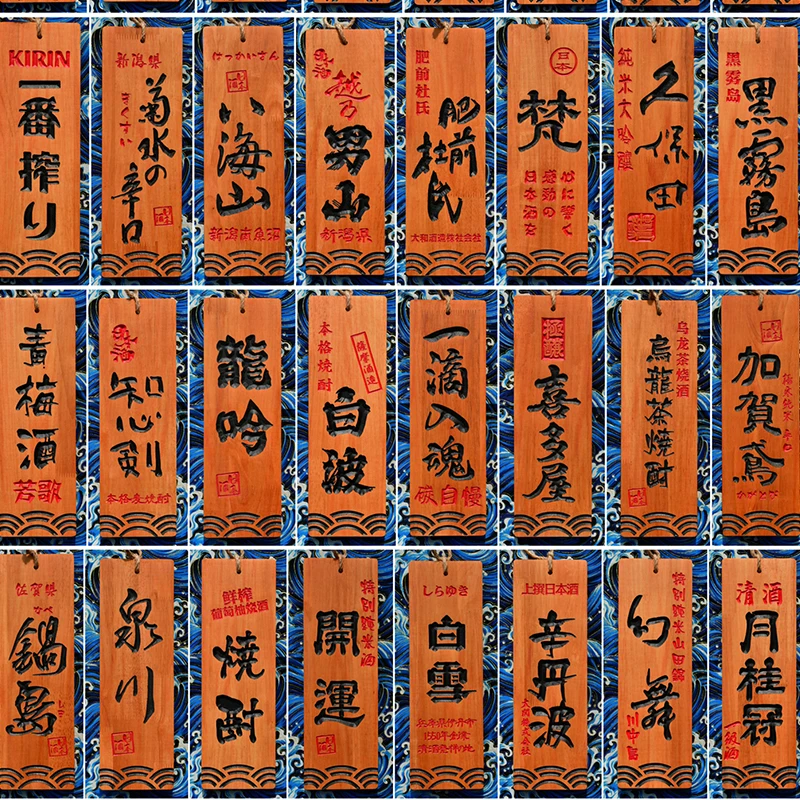 KIRIN
一番搾り
新潟県
菊水の
辛口
きくすい
はっかいさん
八海山
新潟南魚沼
越乃
男山
新潟県
肥前杜氏
肥前
杜氏
大和酒造株式会社
日本
梵
心に響く
感動の
日本酒を
久保田
純米大吟醸
黒霧島
黒霧島
青梅酒
若歌
知心剣
本格麦焼酎
龍吟
本格焼酎
薩摩酒造
白波
一滴入魂
碳自慢
極醸
喜多屋
乌龙茶烧酒
烏龍茶焼酎
加賀鳶
かがとび
佐賀県
鍋島
泉川
鮮榨
葡萄柚烧酒
焼酎
特別純米酒
開運
しらゆき
白雪
兵庫県伊丹市
1550年創業
清酒発祥の地
上撰日本酒
辛丹波
大関株式会社
特別純米山田錦
幻舞
川中島
清酒
月桂冠
一級酒